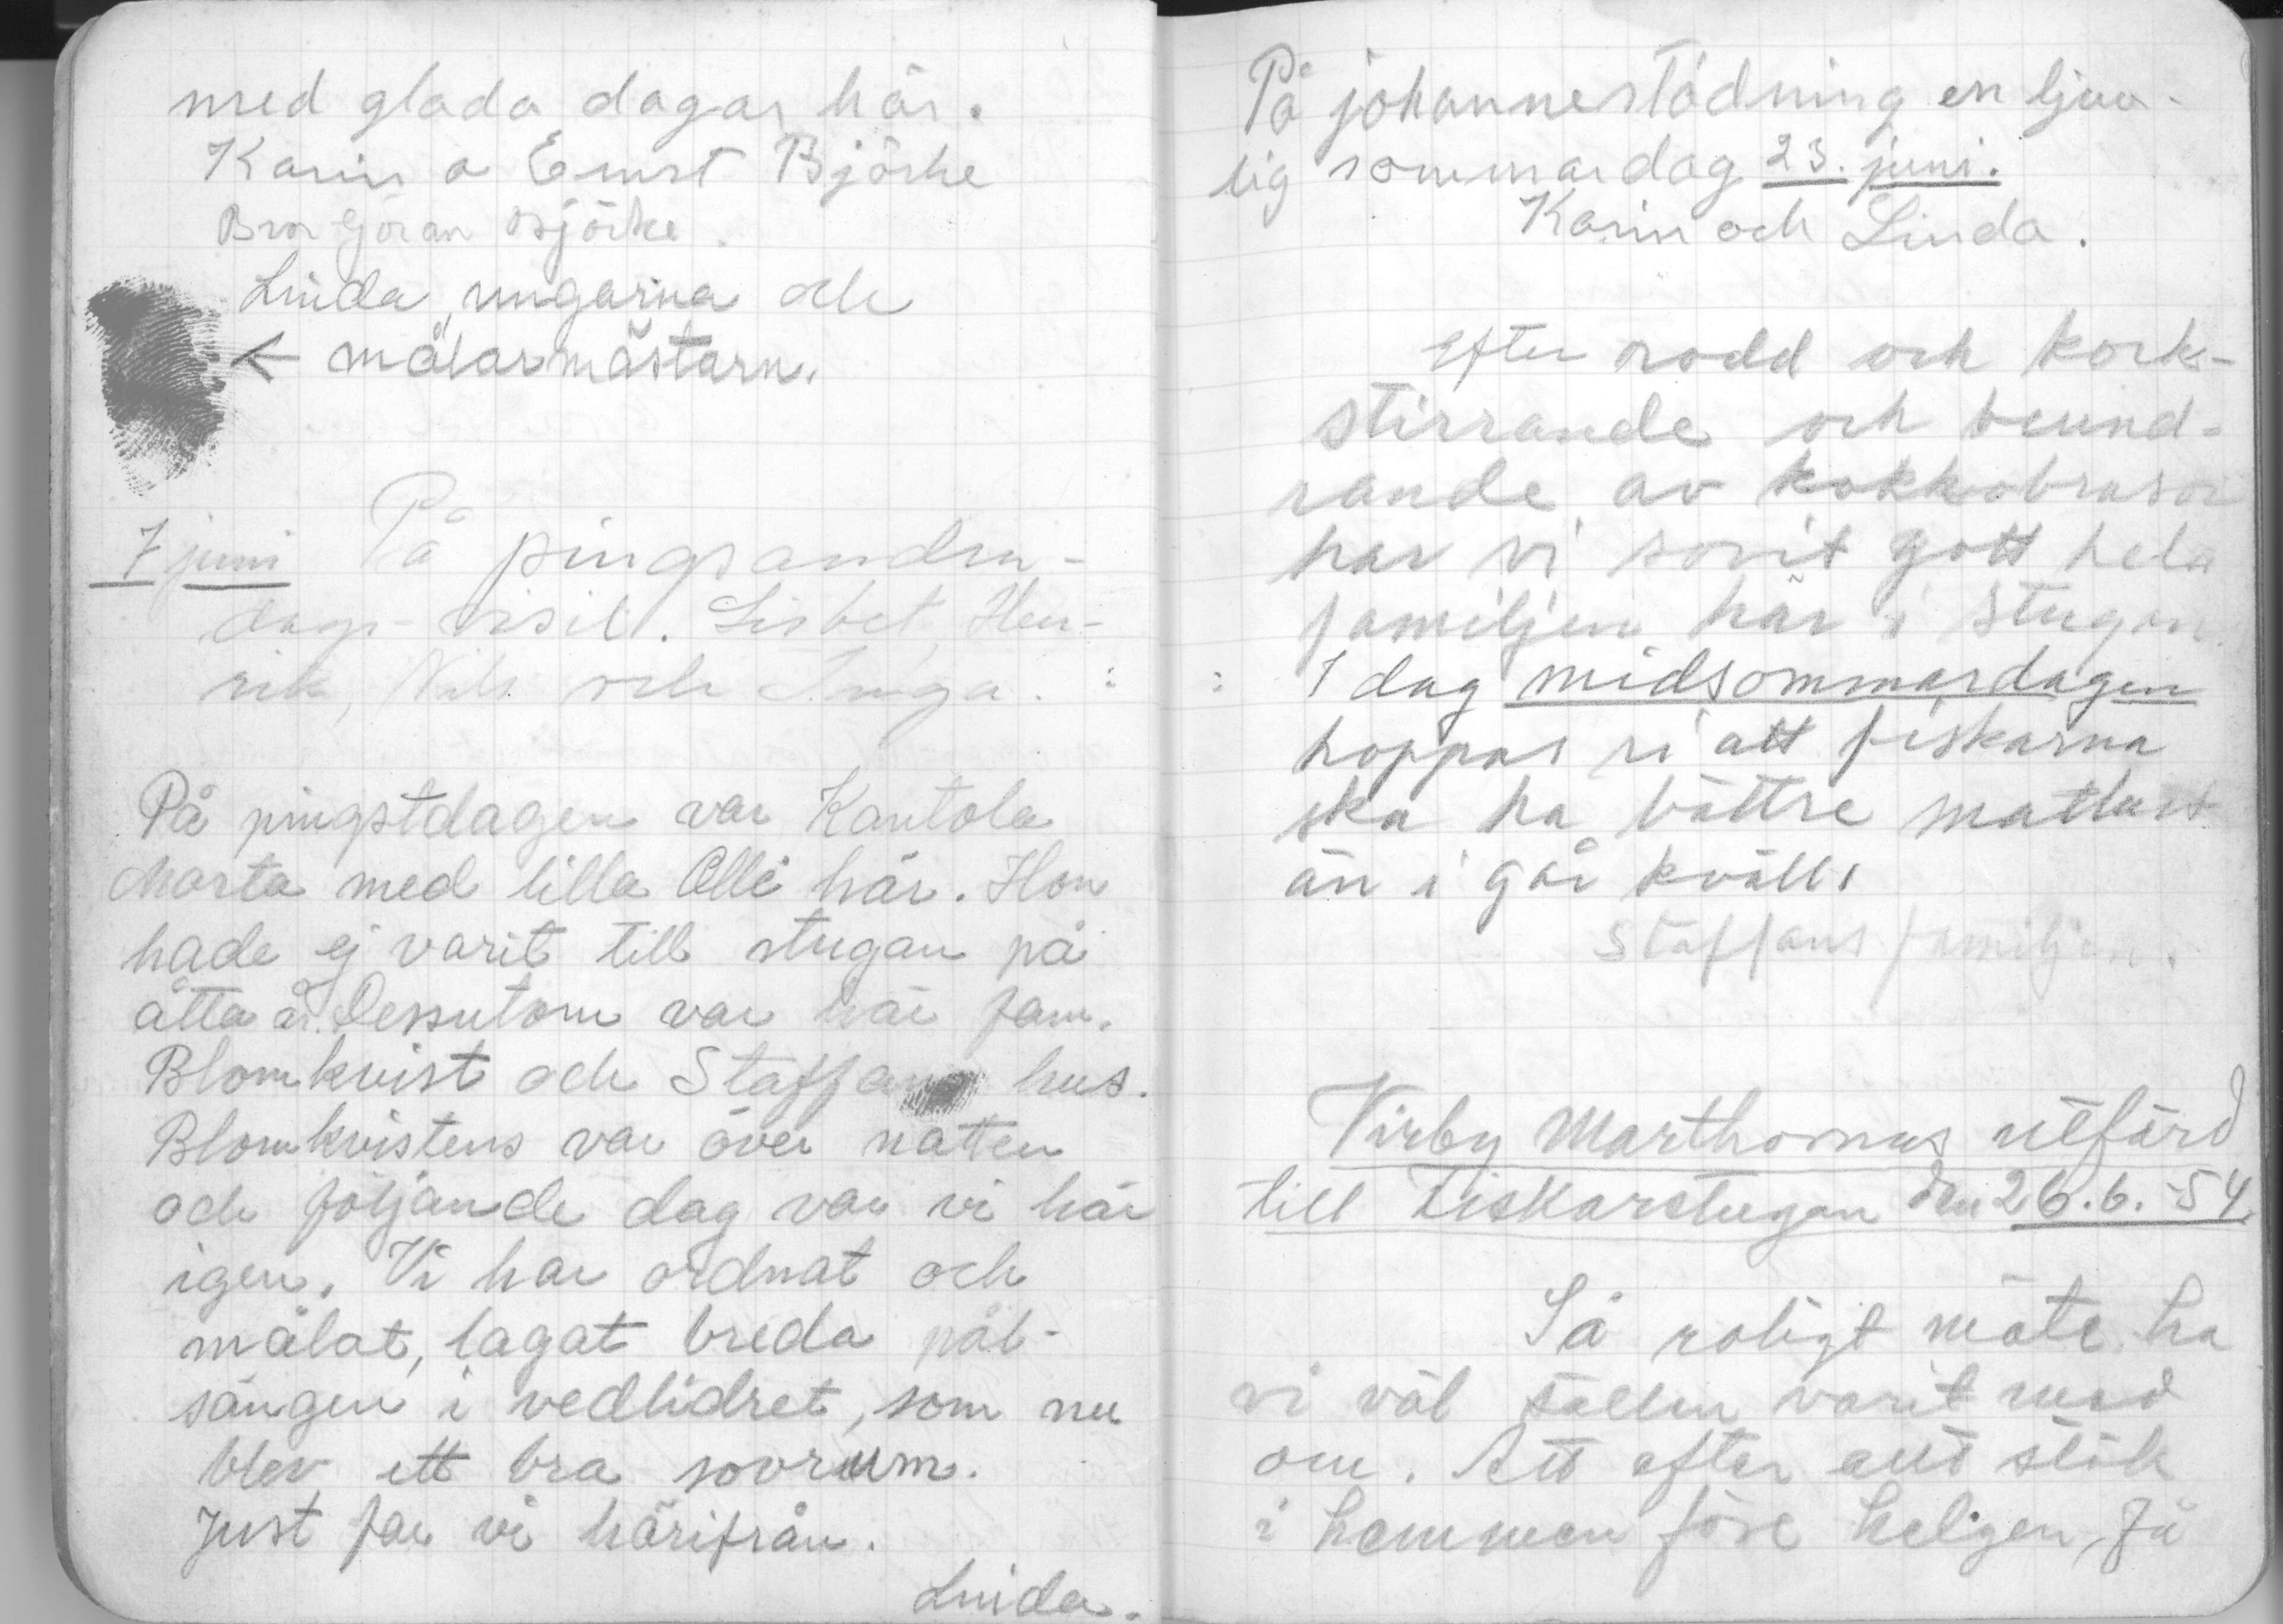 med glada dagar här.
Karin o Ernst Björke
Bror Göran Björke.
Linda, ungarna och
← målarmästarn.
7 juni På pingsandra-
dags-visit. Lisbet, Hen-
rik, Nils och Inga.
På pingstdagen var Kantola
Marta med lilla Olli här. Hon
hade ej varit till stugan på
åtta år. Dessutom var här fam.
Blomkvist och Staffans hus.
Blomkvistens var över natten
och följande dag var vi här
igen. Vi har ordnat och
målat, lagat breda pål-
sängen i vedlidret, som nu
blev ett bra sovrum.
Just far vi härifrån.
Linda.
På johannestädning en ljuv-
lig sommardag 23. juni.
Karin och Linda.
Efter rodd och kork-
stirrande och beund-
rande av kokkobrasor
har vi sovit gott hela
familjen här i stugan.
I dag midsommardagen
hoppas vi att fiskarna
ska ha bättre matlust
än i går kväll.
Staffans familjen.
Virby Marthornas utfärd
till Fiskarstugan den 26.6.-54.
Så roligt möte ha
vi väl sällan varit med
om. Att efter allt stök
i hemmen före helgen, få